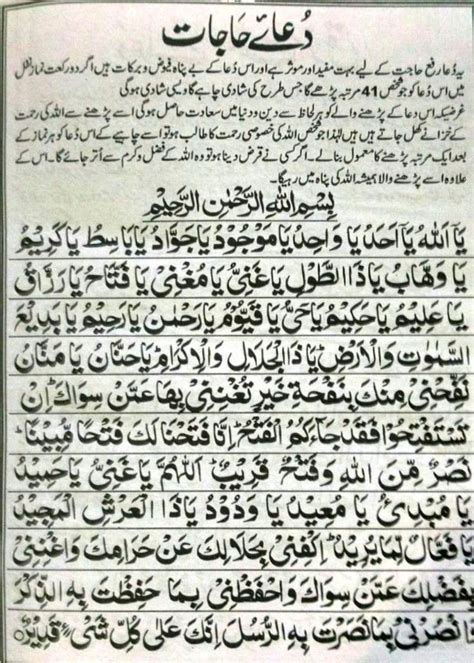 دُعائے حاجات
یہ دُعا رفع حاجت کے لیے بہت مفید اور موثر ہے اور اس دُعا کے بے پناہ فیوض و برکات ہیں اگر دو رکعت نماز نفل
میں اس دُعا کو جو شخص 41 مرتبہ پڑھے گا جس طرح کی شادی چاہے گا ویسی شادی ہو گی
غرضیکہ اس دعا کے پڑھنے والے کو ہر لحاظ سے دین و دنیا میں سعادت حاصل ہو گی اسے پڑھنے سے اللہ کی رحمت
کے خزانے کھل جاتے ہیں لہٰذا جو شخص اللہ کی خصوصی رحمت کا طالب ہو تو اسے چاہیے کہ اس دُعا کو ہر نماز کے
بعد ایک مرتبہ پڑھنے کا معمول بنا لے۔ اگر کسی نے قرض دینا ہو تو وہ اللہ کے فضل و کرم سے اُتر جائے گا۔ اس کے
علاوہ اسے پڑھنے والا ہمیشہ اللہ کی پناہ میں رہیگا۔
بِسْمِ اللهِ الرَّحْمٰنِ الرَّحِيْمِ
يَا اَللهُ يَا اَحَدُ يَا وَاحِدُ يَا مَوْجُوْدُ يَا جَوَّادُ يَا بَاسِطُ يَا كَرِيْمُ
يَا وَهَّابُ يَا ذَا الطَّوْلِ يَا غَنِيُّ يَا مُغْنِيْ يَا فَتَّاحُ يَا رَزَّاقُ
يَا عَلِيْمُ يَا حَكِيْمُ يَا حَيُّ يَا قَيُّوْمُ يَا رَحْمٰنُ يَا رَحِيْمُ يَا بَدِيْعَ
السَّمٰوٰتِ وَالْاَرْضِ يَا ذَا الْجَلَالِ وَالْاِكْرَامِ يَا حَنَّانُ يَا مَنَّانُ
نَفِّحْنِيْ مِنْكَ بِنَفْحَةِ خَيْرٍ تُغْنِنِيْ بِهَا عَمَّنْ سِوَاكَ اِنْ
تَسْتَفْتِحُوْا فَقَدْ جَاءَكُمُ الْفَتْحُ اِنَّا فَتَحْنَا لَكَ فَتْحًا مُّبِيْنًا
نَصْرٌ مِّنَ اللهِ وَفَتْحٌ قَرِيْبٌ اَللّٰهُمَّ يَا غَنِيُّ يَا حَمِيْدُ
يَا مُبْدِئُ يَا مُعِيْدُ يَا وَدُوْدُ يَا ذَا الْعَرْشِ الْمَجِيْدِ
يَا فَعَّالٌ لِّمَا يُرِيْدُ اِكْفِنِيْ بِحَلَالِكَ عَنْ حَرَامِكَ وَاَغْنِنِيْ
بِفَضْلِكَ عَمَّنْ سِوَاكَ وَاحْفَظْنِيْ بِمَا حَفِظْتَ بِهِ الذِّكْرَ
وَانْصُرْنِيْ بِمَا نَصَرْتَ بِهِ الرُّسُلَ اِنَّكَ عَلٰى كُلِّ شَيْءٍ قَدِيْرٌ